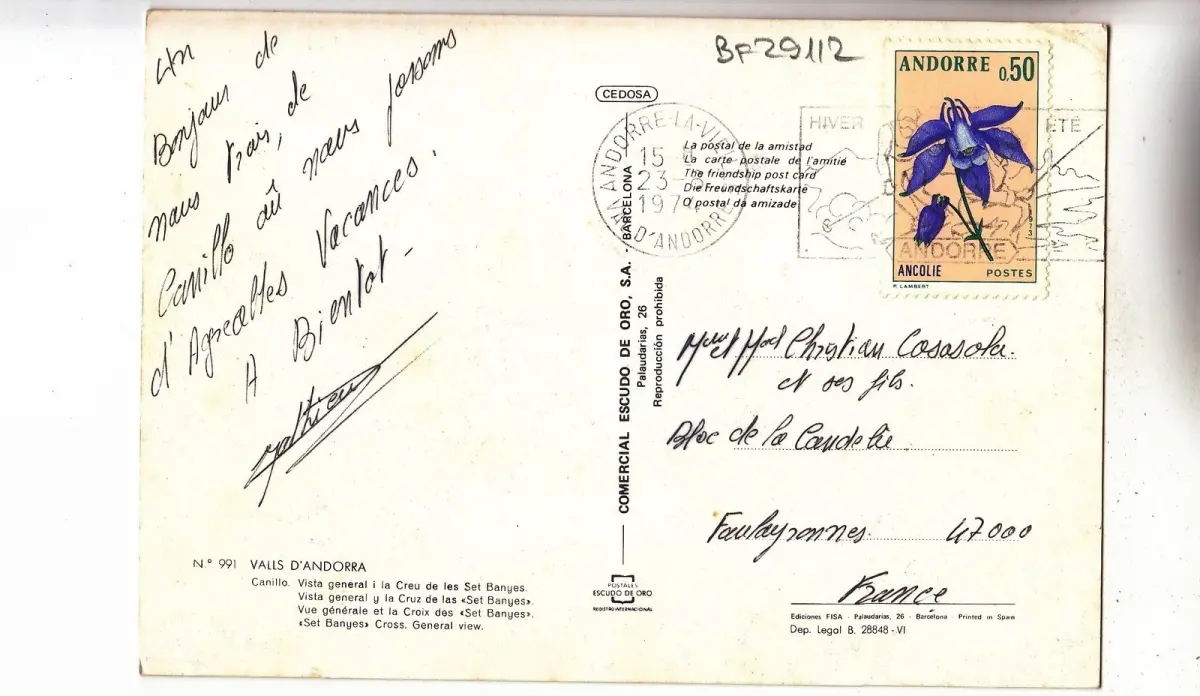 BF29112
Un
Bonjour de
nous trois, de
Canillo où nous passons
d'Agreables Vacances.
A Bientot -
Mathieu
CEDOSA
La postal de la amistad
La carte postale de l'amitié
The friendship post card
Die Freundschaftskarte
O postal da amizade
ANDORRE-LA-VIEILLE
15 H
23 -8
197
VAL D'ANDORRE
HIVER
ÉTÉ
ANDORRE
ANDORRE 0,50
1973
ANCOLIE POSTES
P. LAMBERT
COMERCIAL ESCUDO DE ORO, S.A. - BARCELONA
Palaudarias, 26
Reproducción prohibida
Christian Casasola.
et ses fils.
Bloc de la Candelie
Foulayronnes. 47000
France
N.º 991 VALLS D'ANDORRA
Canillo. Vista general i la Creu de les Set Banyes.
Vista general y la Cruz de las «Set Banyes».
Vue générale et la Croix des «Set Banyes».
«Set Banyes» Cross. General view.
POSTALES
ESCUDO DE ORO
REGISTRO INTERNACIONAL
Ediciones FISA - Palaudarias, 26 - Barcelona - Printed in Spain
Dep. Legal B. 28848 - VI